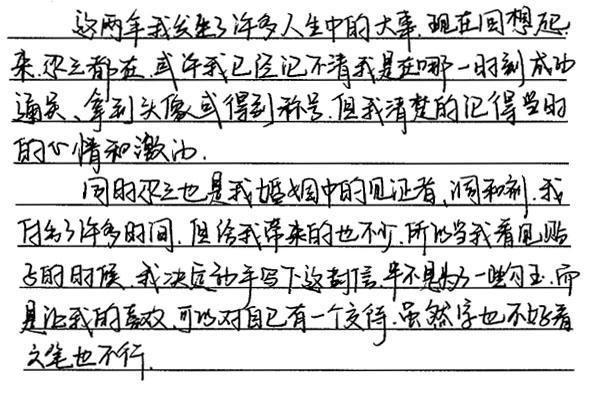 这两年我发生了许多人生中的大事.现在回想起
来.尔三都在.或许我已经记不清我是在哪一时刻成功
通关、拿到头像或得到称号.但我清楚的记得当时
的心情和激动.
同时尔三也是我婚姻中的见证者、润和剂.我
付出了许多时间.但给我带来的也不少.所以当我看见贴
子的时候.我决定动手写下这封信.单不是为了一些勾玉.而
是让我的喜欢.可以对自己有一个交待.虽然字也不好看
文笔也不行.